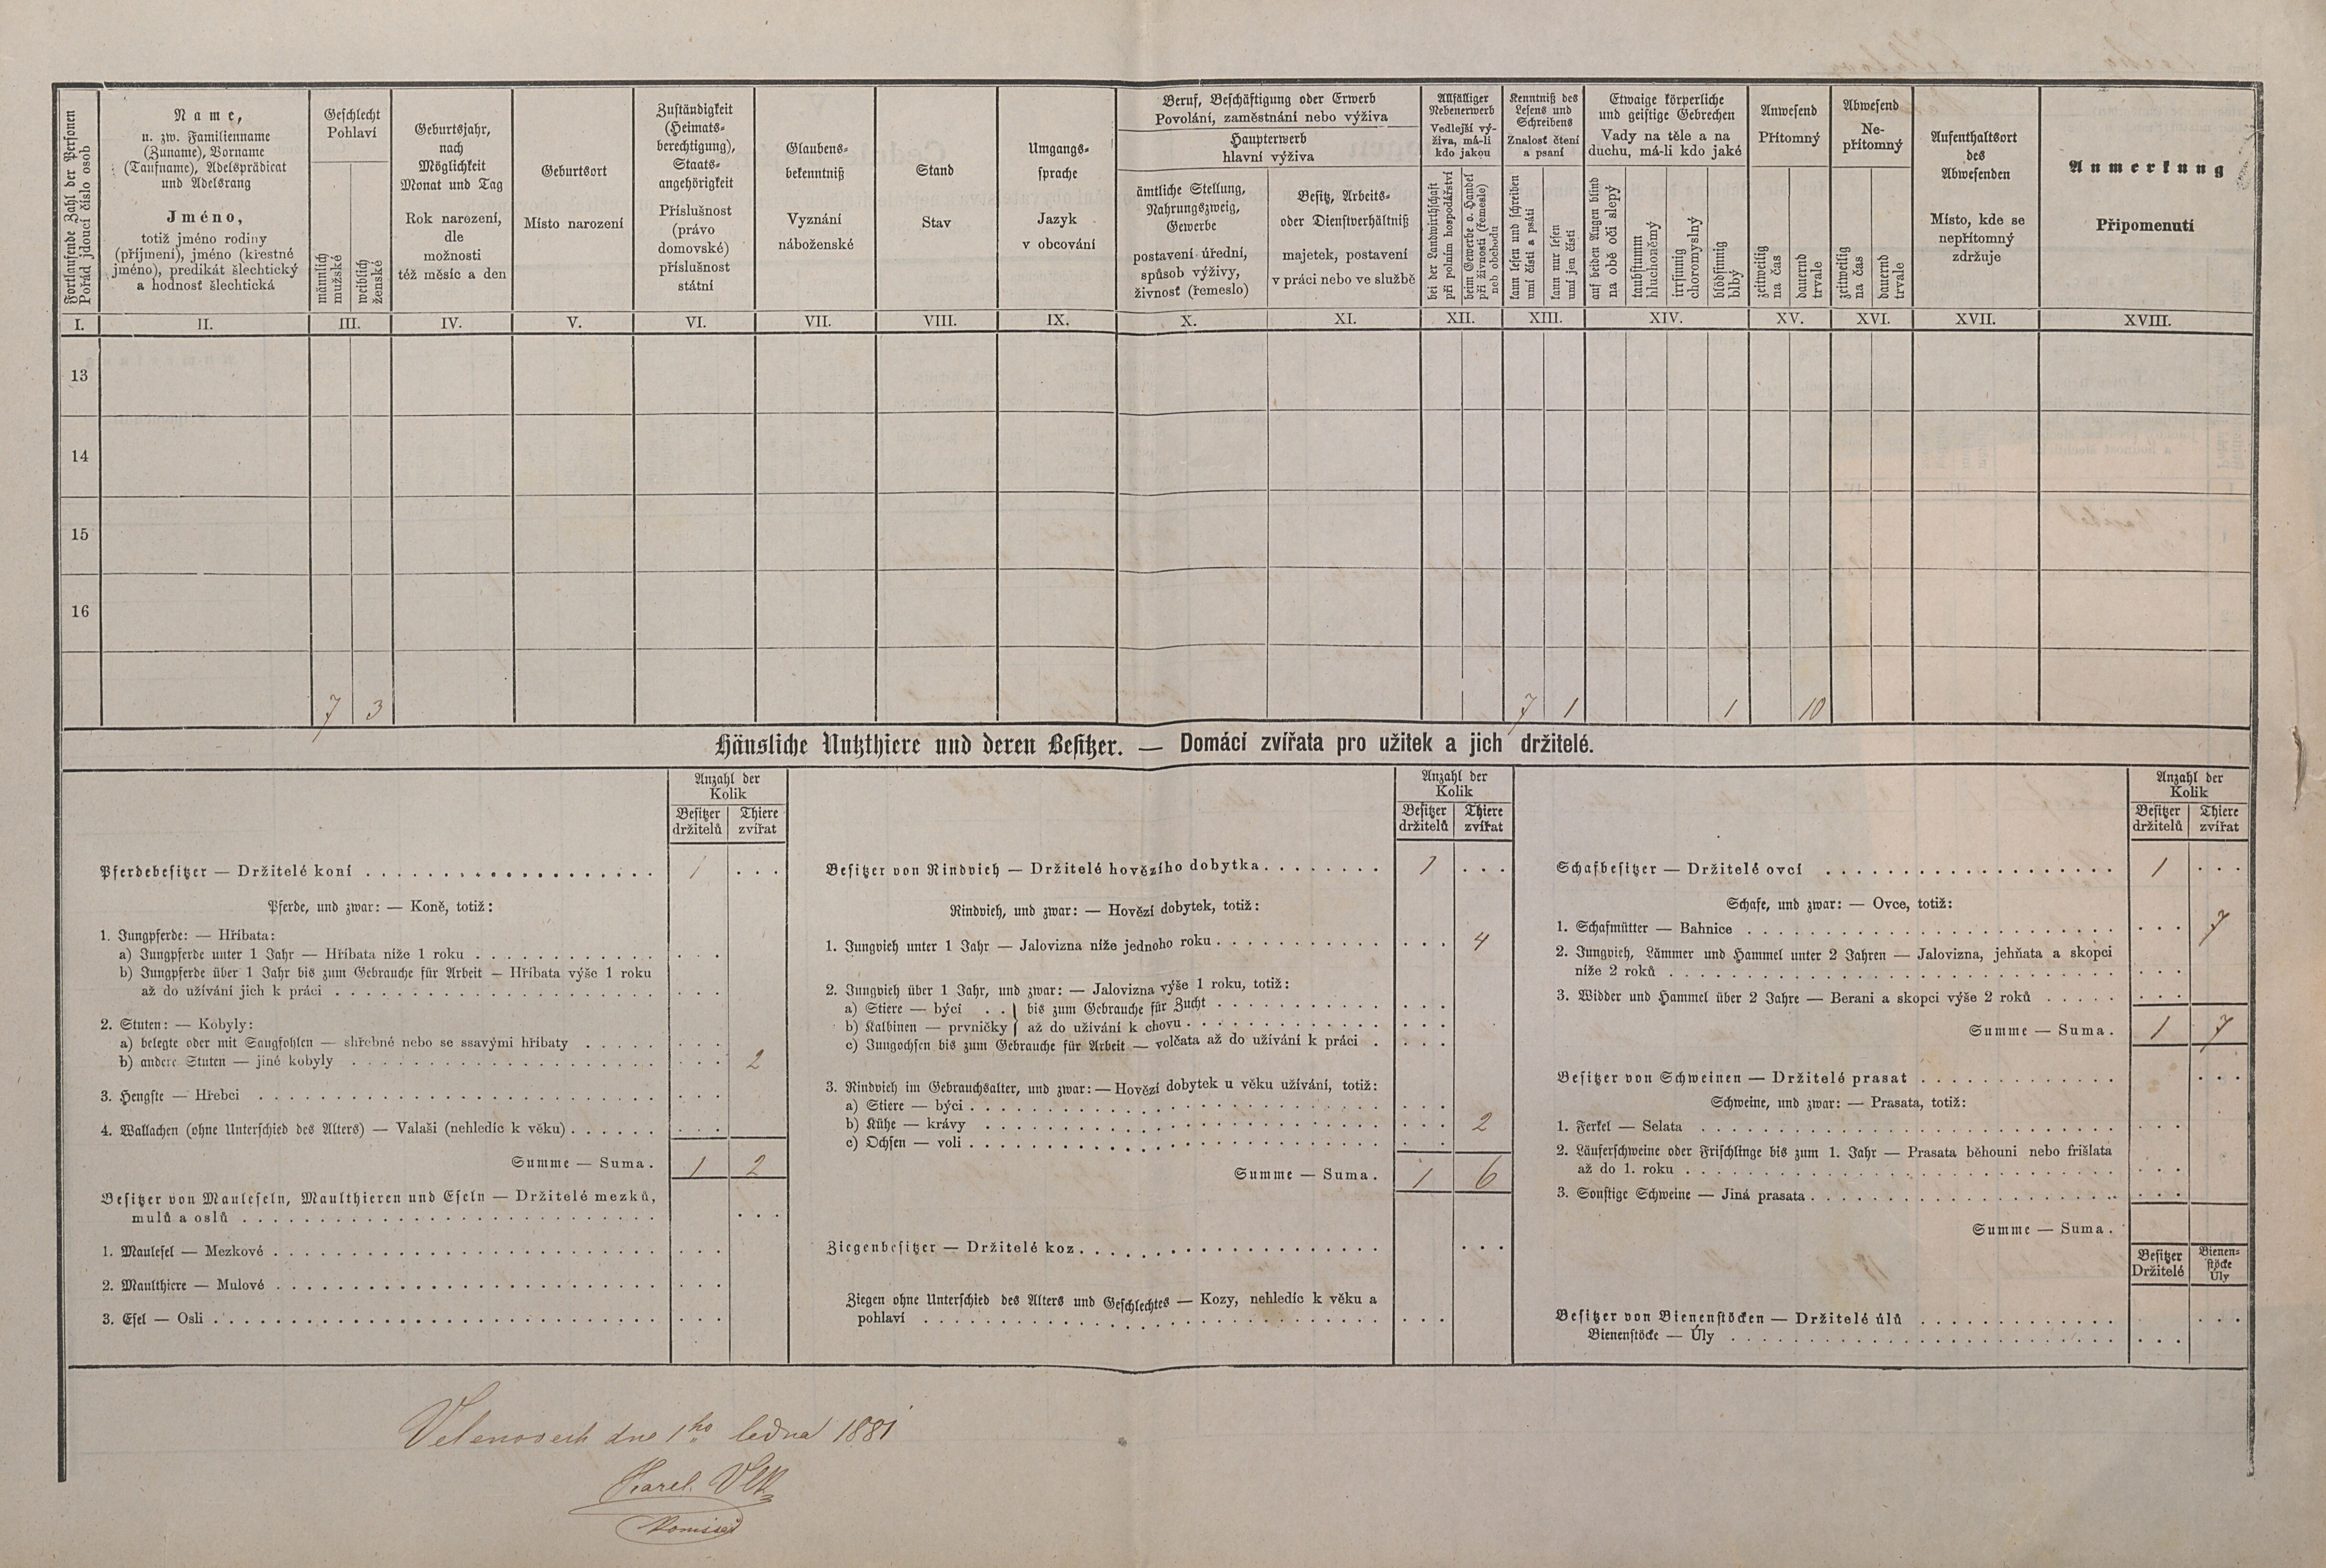 Fortlaufende Zahl der Personen
Pořad jdoucí číslo osob
Name,
u. zw. Familienname
(Zuname), Vorname
(Taufname), Adelsprädicat
und Adelsrang
Jméno,
totiž jméno rodiny
(příjmení), jméno (křestné
jméno), predikát šlechtický
a hodnosť šlechtická
Geschlecht
Pohlaví
männlich
mužské
weiblich
ženské
Geburtsjahr,
nach
Möglichkeit
Monat und Tag
Rok narození,
dle
možnosti
též měsíc a den
Geburtsort
Místo narození
Zuständigkeit
(Heimats-
berechtigung),
Staats-
angehörigkeit
Příslušnost
(právo
domovské)
příslušnost
státní
Glaubens-
bekenntniß
Vyznání
náboženské
Stand
Stav
Umgangs-
sprache
Jazyk
v obcování
Beruf, Beschäftigung oder Erwerb
Povolání, zaměstnání nebo výživa
Haupterwerb
hlavní výživa
ämtliche Stellung,
Nahrungszweig,
Gewerbe
postavení úřední,
spůsob výživy,
živnosť (řemeslo)
Besitz, Arbeits-
oder Dienstverhältniß
majetek, postavení
v práci nebo ve službě
Allfälliger
Nebenerwerb
Vedlejší vý-
živa, má-li
kdo jakou
bei der Landwirthschaft
při polním hospodářství
beim Gewerbe o. Handel
při živnosti (řemesle)
neb obchodu
Kenntniß des
Lesens und
Schreibens
Znalosť čtení
a psaní
kann lesen und schreiben
umí čísti a psáti
kann nur lesen
umí jen čísti
Etwaige körperliche
und geistige Gebrechen
Vady na těle a na
duchu, má-li kdo jaké
auf beiden Augen blind
na obě oči slepý
taubstumm
hluchoněmý
irrsinnig
choromyslný
blödsinnig
blbý
Anwesend
Přítomný
zeitweilig
na čas
dauernd
trvale
Abwesend
Ne-
přítomný
zeitweilig
na čas
dauernd
trvale
Aufenthaltsort
des
Abwesenden
Místo, kde se
nepřítomný
zdržuje
Anmerkung
Připomenutí
I. II. III. IV. V. VI. VII. VIII. IX. X. XI. XII. XIII. XIV. XV. XVI. XVII. XVIII.
13
14
15
16
7 3 7 1 1 10
Häusliche Nutzthiere und deren Besitzer. — Domácí zvířata pro užitek a jich držitelé.
Anzahl der
Kolik
Besitzer
držitelů
Thiere
zvířat
Pferdebesitzer — Držitelé koní . . . 1 . . .
Pferde, und zwar: — Koně, totiž:
1. Jungpferde: — Hříbata:
a) Jungpferde unter 1 Jahr — Hříbata níže 1 roku . . .
b) Jungpferde über 1 Jahr bis zum Gebrauche für Arbeit — Hříbata výše 1 roku
až do užívání jich k práci . . .
2. Stuten: — Kobyly:
a) belegte oder mit Saugfohlen — shřebné nebo se ssavými hříbaty . . .
b) andere Stuten — jiné kobyly . . . 2
3. Hengste — Hřebci . . .
4. Wallachen (ohne Unterschied des Alters) — Valaši (nehledíc k věku) . . .
Summe — Suma. 1 2
Besitzer von Mauleseln, Maulthieren und Eseln — Držitelé mezků,
mulů a oslů . . .
1. Maulesel — Mezkové . . .
2. Maulthiere — Mulové . . .
3. Esel — Osli . . .
Anzahl der
Kolik
Besitzer
držitelů
Thiere
zvířat
Besitzer von Rindvieh — Držitelé hovězího dobytka . . . 1 . . .
Rindvieh, und zwar: — Hovězí dobytek, totiž:
1. Jungvieh unter 1 Jahr — Jalovizna níže jednoho roku . . . 4
2. Jungvieh über 1 Jahr, und zwar: — Jalovizna výše 1 roku, totiž:
a) Stiere — býci . . } bis zum Gebrauche für Zucht . . .
b) Kalbinen — prvničky } až do užívání k chovu . . .
c) Jungochsen bis zum Gebrauche für Arbeit — volčata až do užívání k práci . . . .
3. Rindvieh im Gebrauchsalter, und zwar: — Hovězí dobytek u věku užívání, totiž:
a) Stiere — býci . . .
b) Kühe — krávy . . . 2
c) Ochsen — voli . . .
Summe — Suma. 1 6
Ziegenbesitzer — Držitelé koz . . .
Ziegen ohne Unterschied des Alters und Geschlechtes — Kozy, nehledíc k věku a
pohlaví . . .
Anzahl der
Kolik
Besitzer
držitelů
Thiere
zvířat
Schafbesitzer — Držitelé ovcí . . . 1 . . .
Schafe, und zwar: — Ovce, totiž:
1. Schafmütter — Bahnice . . . 7
2. Jungvieh, Lämmer und Hammel unter 2 Jahren — Jalovizna, jehňata a skopci
níže 2 roků . . .
3. Widder und Hammel über 2 Jahre — Berani a skopci výše 2 roků . . .
Summe — Suma. 1 7
Besitzer von Schweinen — Držitelé prasat . . .
Schweine, und zwar: — Prasata, totiž:
1. Ferkel — Selata . . .
2. Läuferschweine oder Frischlinge bis zum 1. Jahr — Prasata běhouni nebo frišlata
až do 1. roku . . .
3. Sonstige Schweine — Jiná prasata . . .
Summe — Suma.
Besitzer
Držitelé
Bienen-
stöcke
Úly
Besitzer von Bienenstöcken — Držitelé úlů . . .
Bienenstöcke — Úly . . .
Velenovech dne 1ho ledna 1881
Karel Vlk
Komisař